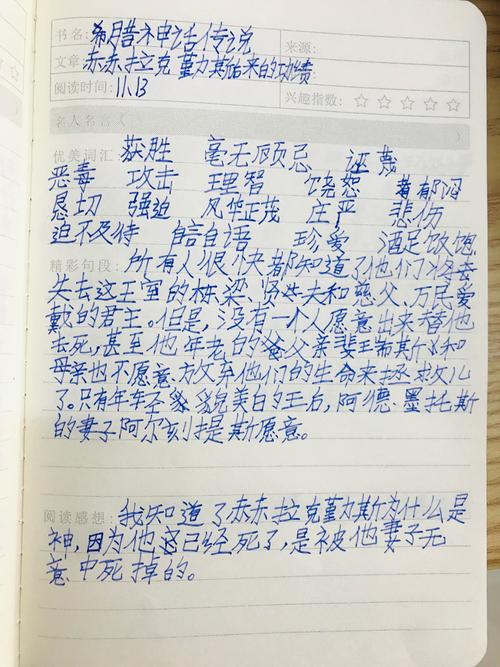 书名: 希腊神话传说
来源:
文章: 赫赫拉克堇力斯后来的功绩
阅读时间: 11.13
兴趣指数: ☆☆☆☆☆
名人名言( )
优美词汇 获胜 毫无顾忌 诬蔑
恶毒 攻击 理智 饶恕 郁闷
恳切 强迫 风华正茂 庄严 悲伤
迫不及待 自言自语 珍爱 酒足饭饱
精彩句段: 所有人很快都知道了他们将要
失去这王室的栋梁、贤丈夫和慈父、万民爱
戴的君主。但是,没有一个人愿意出来替他
去死,甚至他年老的父亲斐瑞斯和
母亲也不愿意放弃他们的生命来拯救儿
了。只有年轻貌美的王后,阿德·墨托斯
的妻子阿尔刻提斯愿意。
阅读感想: 我知道了赫赫拉克堇力斯为什么是
神,因为他已经死了,是被他妻子无
意中死掉的。